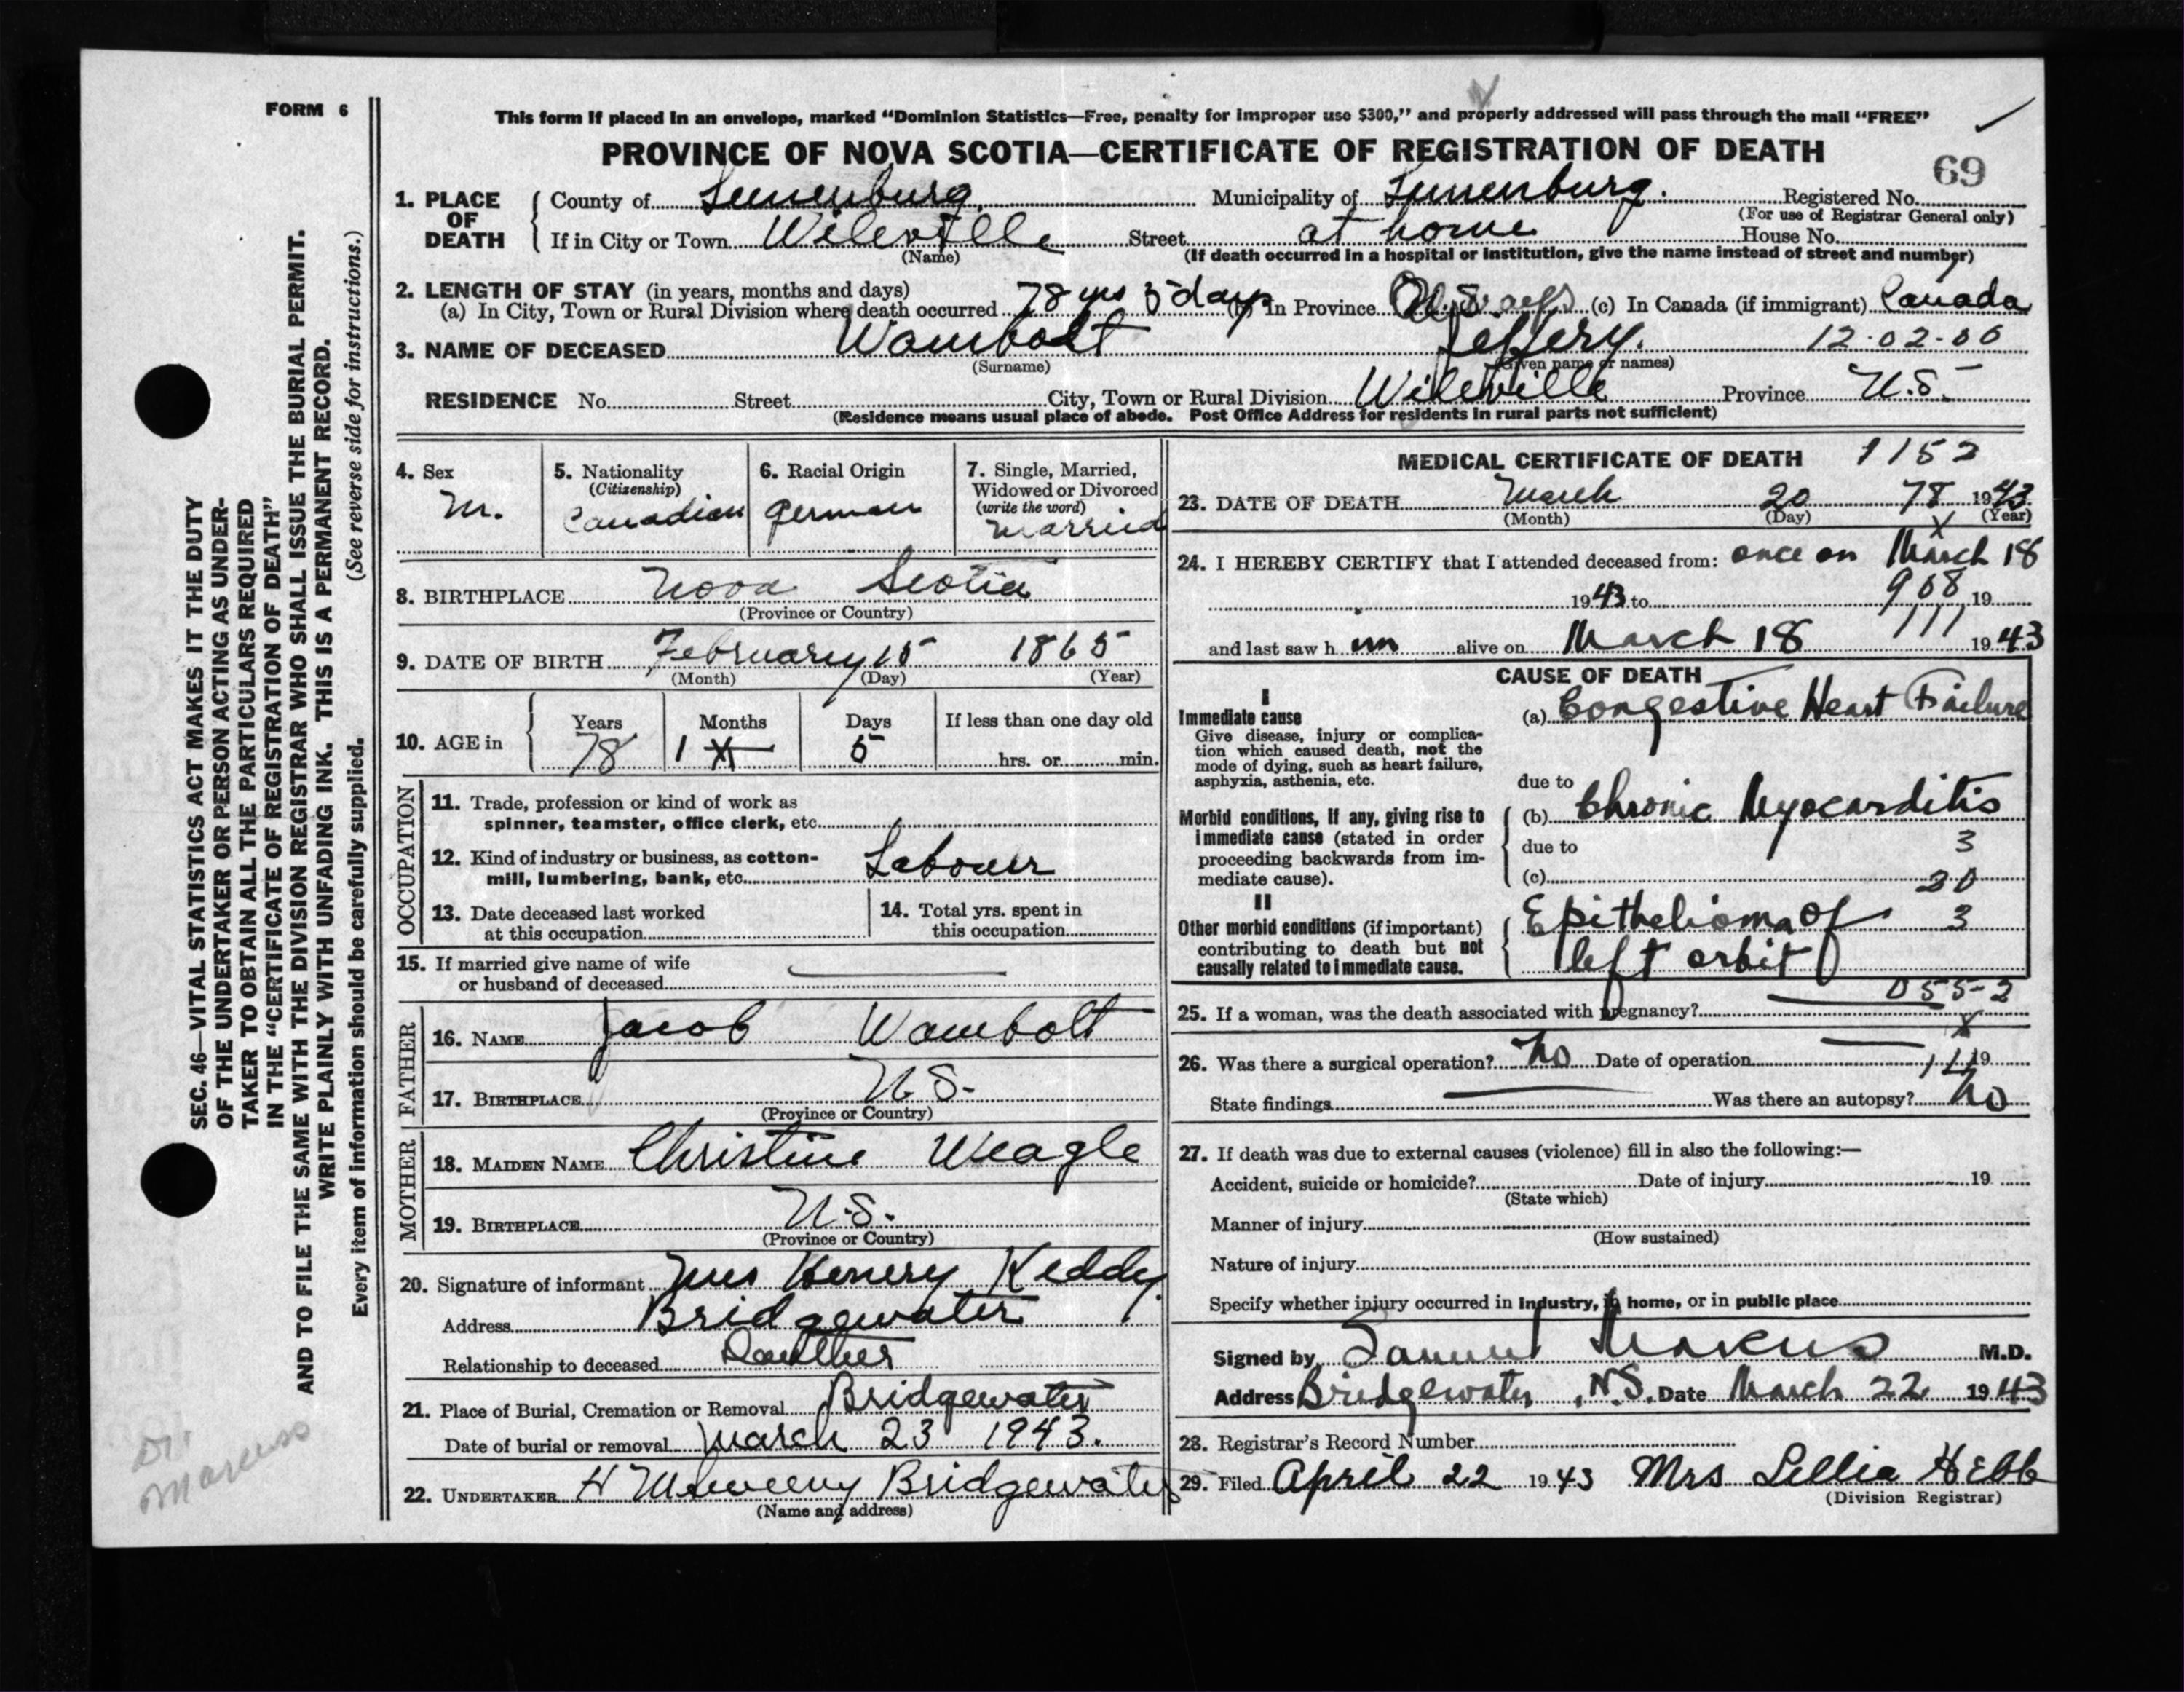 FORM 6
This form if placed in an envelope, marked “Dominion Statistics—Free, penalty for improper use $300,” and properly addressed will pass through the mail “FREE”
PROVINCE OF NOVA SCOTIA—CERTIFICATE OF REGISTRATION OF DEATH
69
1. PLACE OF DEATH
County of Lunenburg. Municipality of Lunenburg. Registered No.
(For use of Registrar General only)
If in City or Town Wileville Street at home House No.
(Name) (If death occurred in a hospital or institution, give the name instead of street and number)
2. LENGTH OF STAY (in years, months and days)
(a) In City, Town or Rural Division where death occurred 78 yrs 5 days (b) In Province N.S. (c) In Canada (if immigrant) Canada
3. NAME OF DECEASED Wambolt Jeffery. 12-02-00
(Surname) (Given name or names)
RESIDENCE No. Street City, Town or Rural Division Wileville Province N.S.
(Residence means usual place of abode. Post Office Address for residents in rural parts not sufficient)
4. Sex
M.
5. Nationality
(Citizenship)
Canadian
6. Racial Origin
German
7. Single, Married,
Widowed or Divorced
(write the word)
Married
8. BIRTHPLACE Nova Scotia
(Province or Country)
9. DATE OF BIRTH February 15 1865
(Month) (Day) (Year)
10. AGE in
Years Months Days If less than one day old
78 1 5 hrs. or min.
OCCUPATION
11. Trade, profession or kind of work as
spinner, teamster, office clerk, etc.
12. Kind of industry or business, as cotton-
mill, lumbering, bank, etc. Labourer
13. Date deceased last worked
at this occupation
14. Total yrs. spent in
this occupation
15. If married give name of wife
or husband of deceased
FATHER
16. NAME Jacob Wambolt
17. BIRTHPLACE N.S.
(Province or Country)
MOTHER
18. MAIDEN NAME Christine Weagle
19. BIRTHPLACE N.S.
(Province or Country)
20. Signature of informant Mrs Henery Keddy
Address Bridgewater
Relationship to deceased Daulther
21. Place of Burial, Cremation or Removal Bridgewater
Date of burial or removal March 23 1943.
22. UNDERTAKER H Bridgewater
(Name and address)
MEDICAL CERTIFICATE OF DEATH 1152
23. DATE OF DEATH March 20 78 1943
(Month) (Day) (Year)
X
24. I HEREBY CERTIFY that I attended deceased from: once on March 18
1943 to 908 19
111
and last saw h im alive on March 18 1943
CAUSE OF DEATH
I
Immediate cause
Give disease, injury or complica-
tion which caused death, not the
mode of dying, such as heart failure,
asphyxia, asthenia, etc.
(a) Congestive Heart Failure
due to
Morbid conditions, if any, giving rise to
immediate cause (stated in order
proceeding backwards from im-
mediate cause).
(b) Chronic Myocarditis
due to 3
(c) 20
II
Other morbid conditions (if important)
contributing to death but not
causally related to immediate cause.
Epithelioma of 3
left orbit
055-2
25. If a woman, was the death associated with pregnancy?
X
26. Was there a surgical operation? No Date of operation 19
State findings Was there an autopsy? No
27. If death was due to external causes (violence) fill in also the following:—
Accident, suicide or homicide? Date of injury 19
(State which)
Manner of injury
(How sustained)
Nature of injury
Specify whether injury occurred in industry, in home, or in public place
Signed by Samuel Markus M.D.
Address Bridgewater, N.S. Date March 22 1943
28. Registrar's Record Number
29. Filed April 22 1943 Mrs Lellia Hebb
(Division Registrar)
SEC. 46—VITAL STATISTICS ACT MAKES IT THE DUTY
OF THE UNDERTAKER OR PERSON ACTING AS UNDER-
TAKER TO OBTAIN ALL THE PARTICULARS REQUIRED
IN THE “CERTIFICATE OF REGISTRATION OF DEATH”
AND TO FILE THE SAME WITH THE DIVISION REGISTRAR WHO SHALL ISSUE THE BURIAL PERMIT.
WRITE PLAINLY WITH UNFADING INK. THIS IS A PERMANENT RECORD.
Every item of information should be carefully supplied. (See reverse side for instructions.)
Dr.
Marcuss